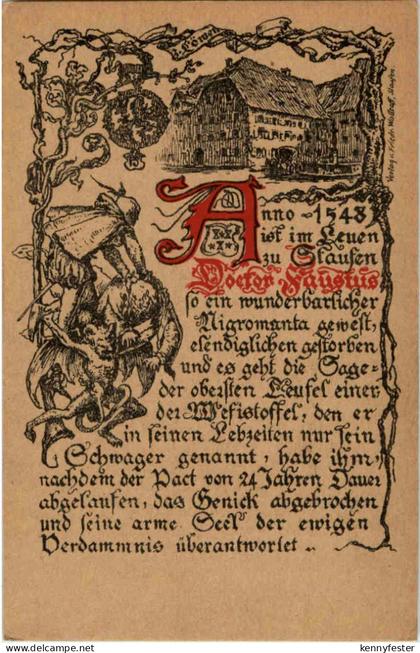 z. Löwen
Anno 1548
ist im Leuen
zu Staufen
Doctor Faustus
so ein wunderbarlicher
Nigromanta gewest,
elendiglichen gestorben
und es geht die Sage
der obersten Teufel einer
der Mefistoffel, den er
in seinen Lebzeiten nur sein
Schwager genannt, habe ihm,
nachdem der Pact von 24 Jahren Dauer
abgelaufen, das Genick abgebrochen
und seine arme Seel der ewigen
Verdammnis überantwortet ..
kennyfester